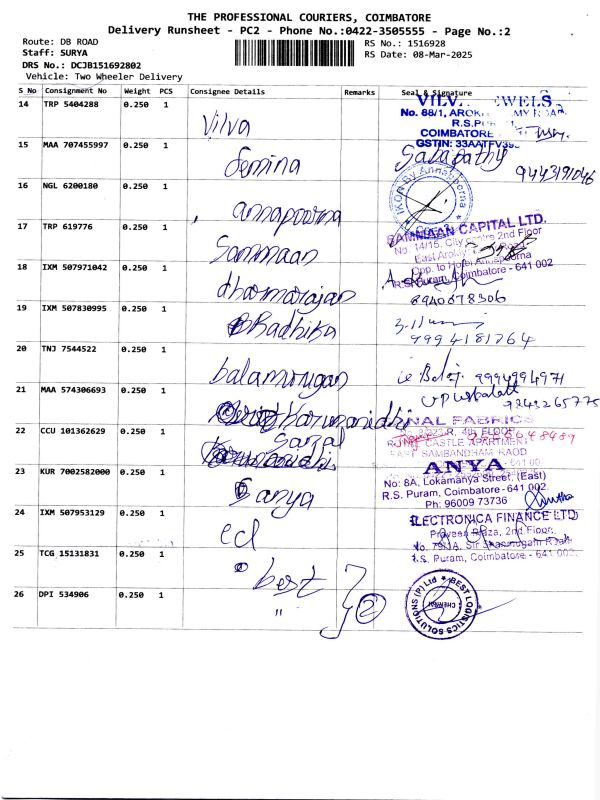 THE PROFESSIONAL COURIERS, COIMBATORE
Delivery Runsheet - PC2 - Phone No.:0422-3505555 - Page No.:2
Route: DB ROAD
RS No.: 1516928
Staff: SURYA
RS Date: 08-Mar-2025
DRS No.: DCJB151692802
Vehicle: Two Wheeler Delivery
S No Consignment No Weight PCS Consignee Details Remarks Seal & Signature
14 TRP 5404288 0.250 1 Vilva
No. 88/1,
R.S.
COIMBATORE
GSTIN: 33AATFV
15 MAA 707455997 0.250 1 Femina Sabapathy
9443191046
16 NGL 6200180 0.250 1 annapoorna
IKON By Annapoorna
17 TRP 619776 0.250 1 Sammaan
SAMMAAN CAPITAL LTD.
No. 14/15, City Centre 2nd Floor
Opp. to Hotel Annapoorna
R.S. Puram, Coimbatore - 641 002
18 IXM 507971042 0.250 1 dharmarajan
8940678306
19 IXM 507830995 0.250 1 Radhika
9994181764
20 TNJ 7544522 0.250 1 balamurugan
9994994971
21 MAA 574306693 0.250 1 Karunanidhi
9842265775
22 CCU 101362629 0.250 1
NAL FABRICS
R. 4th FLOOR
CASTLE APARTMENT
EAST SAMBANDHAM RAOD
23 KUR 7002582000 0.250 1 anya
ANYA
No: 8A, Lokamanya Street, (East)
R.S. Puram, Coimbatore - 641 002.
Ph: 96009 73736
24 IXM 507953129 0.250 1 ecl
ELECTRONICA FINANCE LTD
Praveen Plaza, 2nd Floor,
R.S. Puram, Coimbatore - 641 002.
25 TCG 15131831 0.250 1 best
26 DPI 534906 0.250 1 " 2
BEST LOGISTICS SOLUTIONS (P) Ltd
CHENNAI